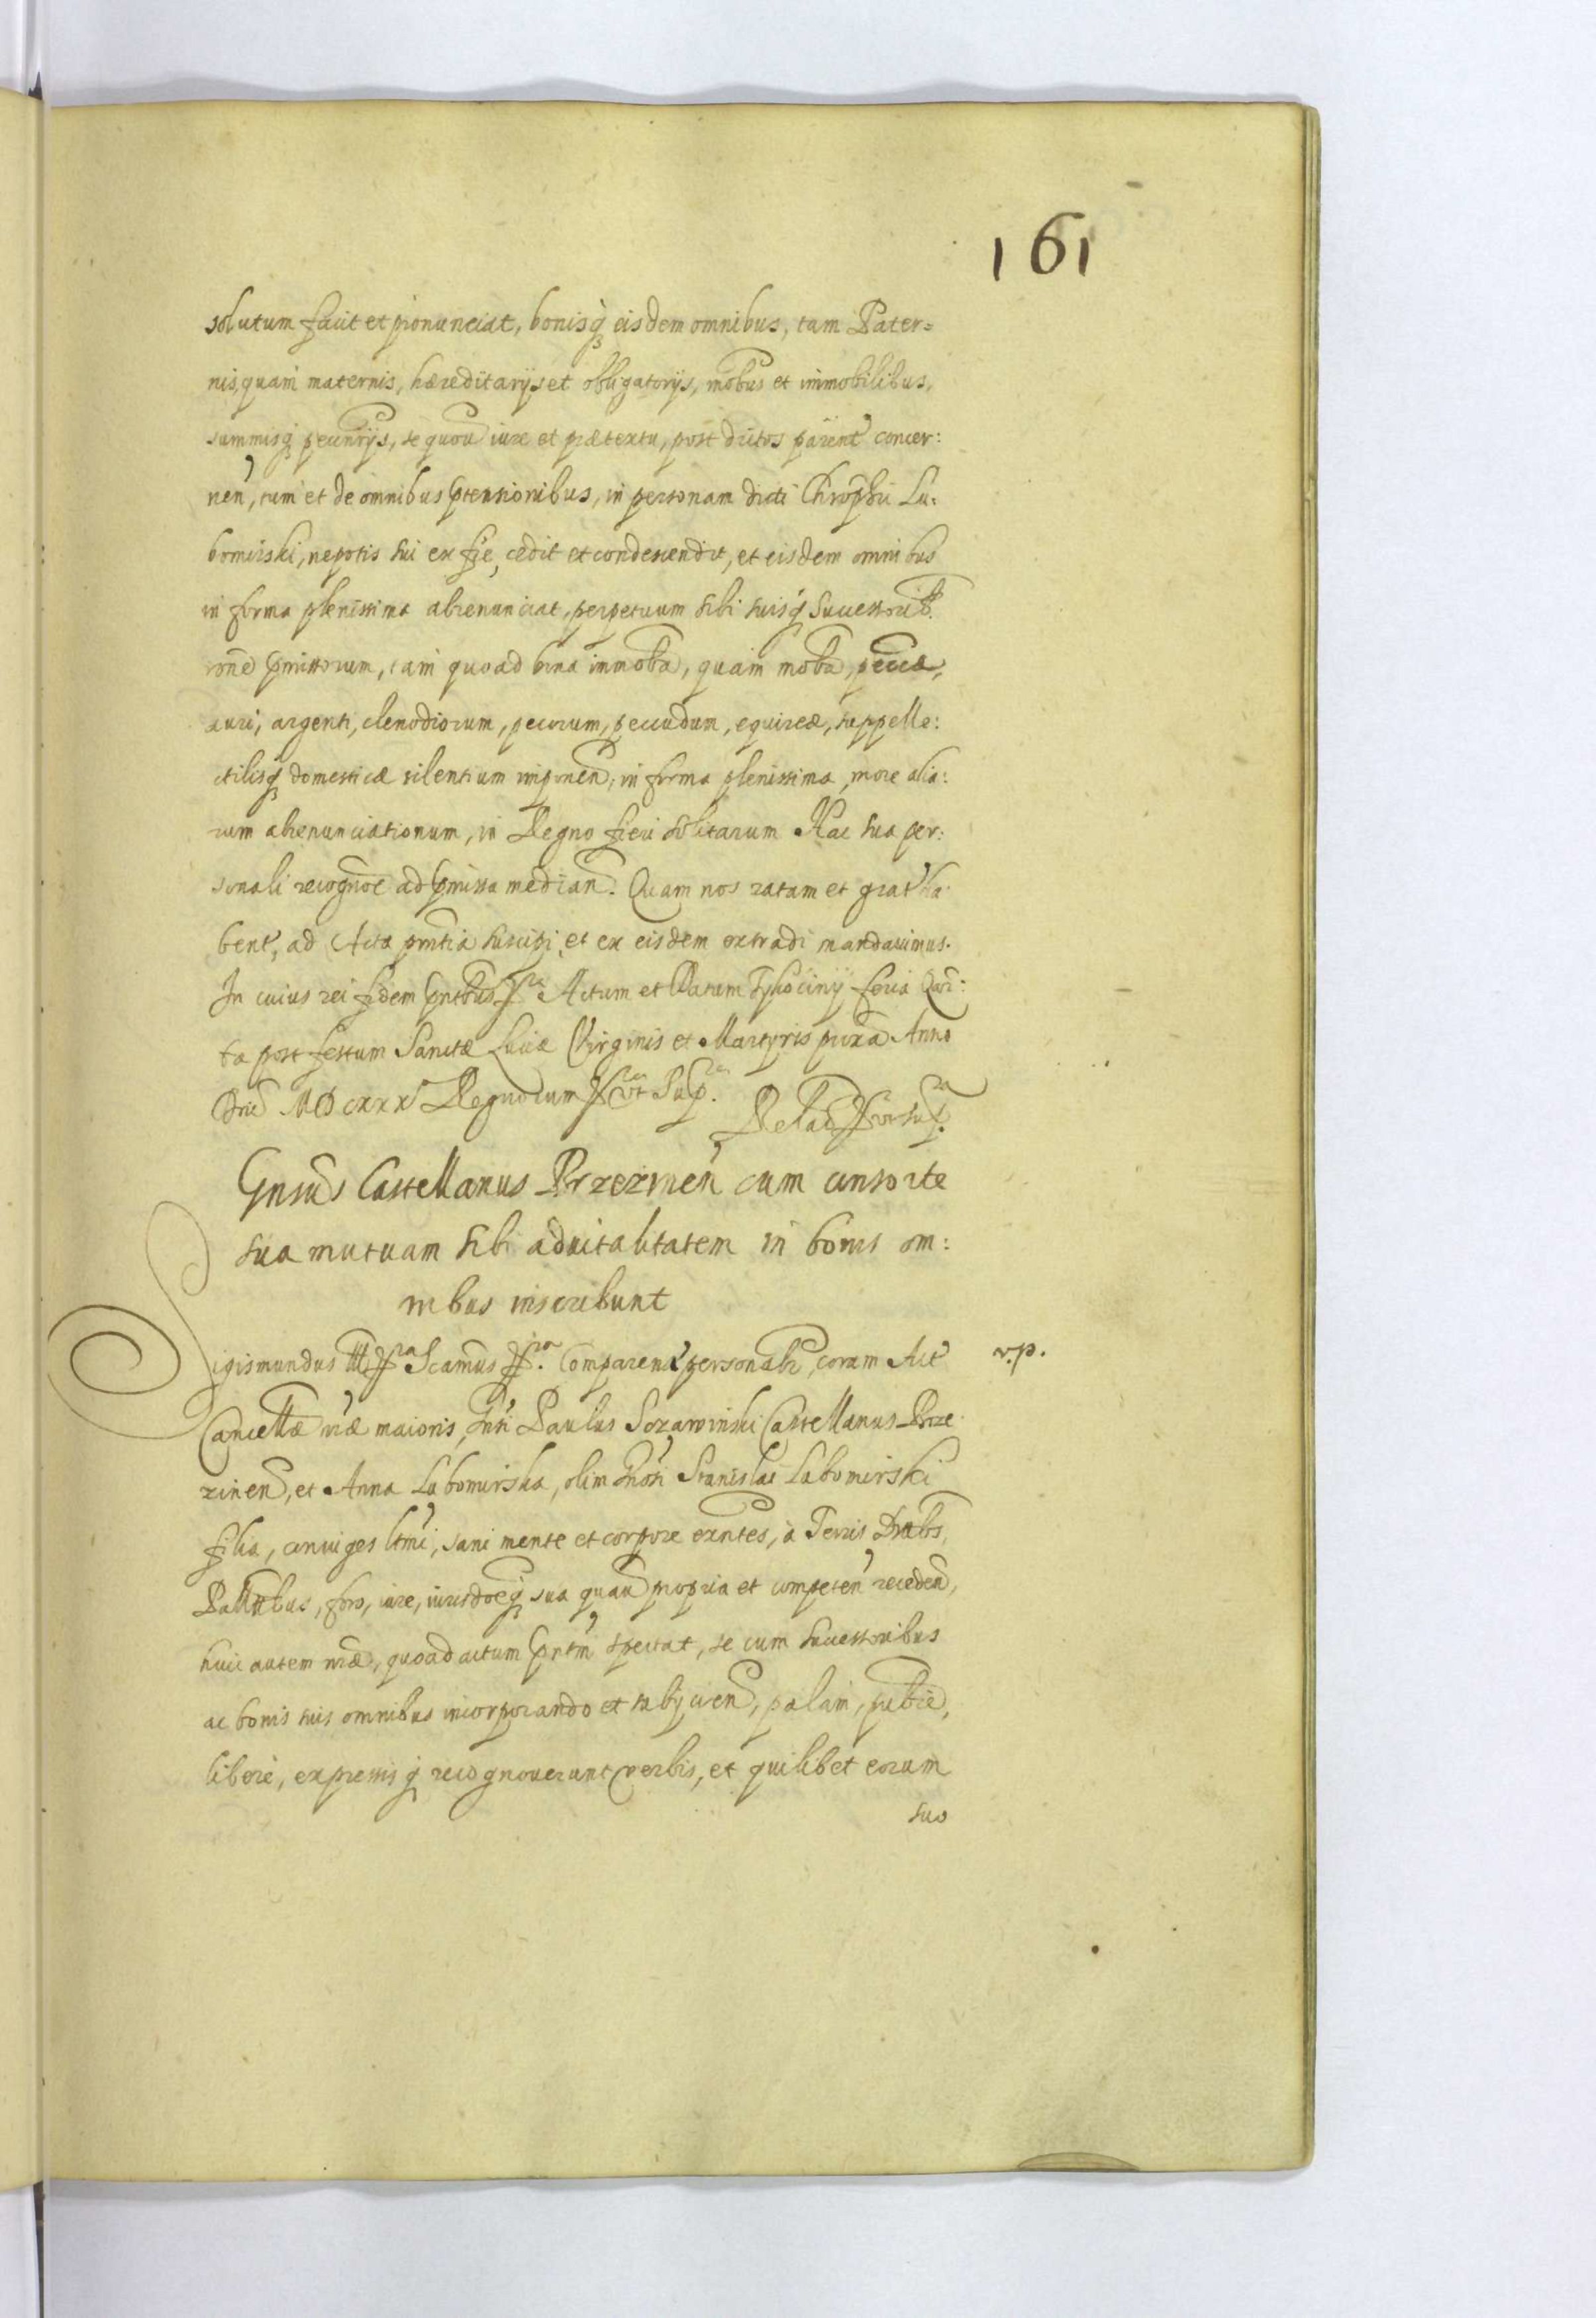 161
solutum facit et pronunciat, bonisq̃ eisdem omnibus, tam Pater=
nis, quam maternis, hæreditarijs et obligatorijs, mobus et immobilibus,
summisq̃ pecunrijs, se quouı iure et prætextu, post dictos parent concer:
nen, tum et de omnibus ptensionibus, in personam dicti Chrophri Lu:
bomirski, nepotis sui ex fre, cedit et condescendit, et eisdem omnibus
in forma plenissima abrenunciat, perpetuum sibi suisq̃ successorib.
rone pmissorum, tam quoad bona immoba, quam moba, pecciæ,
auri, argenti, clenodiorum, pecorum, pecudum, equireæ, suppelle:
ctilisq̃ domesticæ silentium imponen, in forma plenissima, more alia:
rum abrenunciationum, in Regno fieri solitarum Hac sua per:
sonali recognoe ad pmissa median. Quam nos ratam et grat ha:
bent, ad Acta pntia suscipi, et ex eisdem extradi mandauimus.
In cuius rei fidem pntbus Actum et Datum Tykociny feria Quar:
ta post festum Sanctæ Luciæ Virginis et Martyris pxia Anno
Dni MDCXXX Regnorum vt Sup.
Relaō vt sup.
Gnsus Castellanus Przezmen cum consorte
sua mutuam sibi aduitalitatem in bonis om:
nibus inscribunt
Sigismundus III Scamus Comparen personalr, coram Act v.p.
Cancellæ nræ maioris, Gnsi Paulus Dzialinski Castellanus Prze
zinen, et Anna Lubomirska, olim Gnosi Stanislai Lubomirski
filia, coniuges ltmi, sani mente et corpore exntes, à Terris Dtrbs,
Pallatbus, foro, iure, iurisdoeq̃ sua quaui propria et competen receden,
huic autem nræ, quoad actum pntm spectat, se cum successoribus
ac bonis suis omnibus incorporando et subijcien, palam, publice,
libere, expressisq̃ recognouerunt verbis, et quilibet eorum
suo